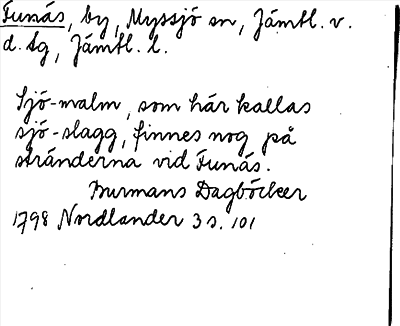 Funäs, by, Myssjö sn, Jämtl. v.
d. tg, Jämtl. l.
Sjö-malm, som här kallas
sjö-slagg, finnes nog på
stränderna vid Funäs.
Burmans Dagböcker
1798 Nordlander 3 s. 101